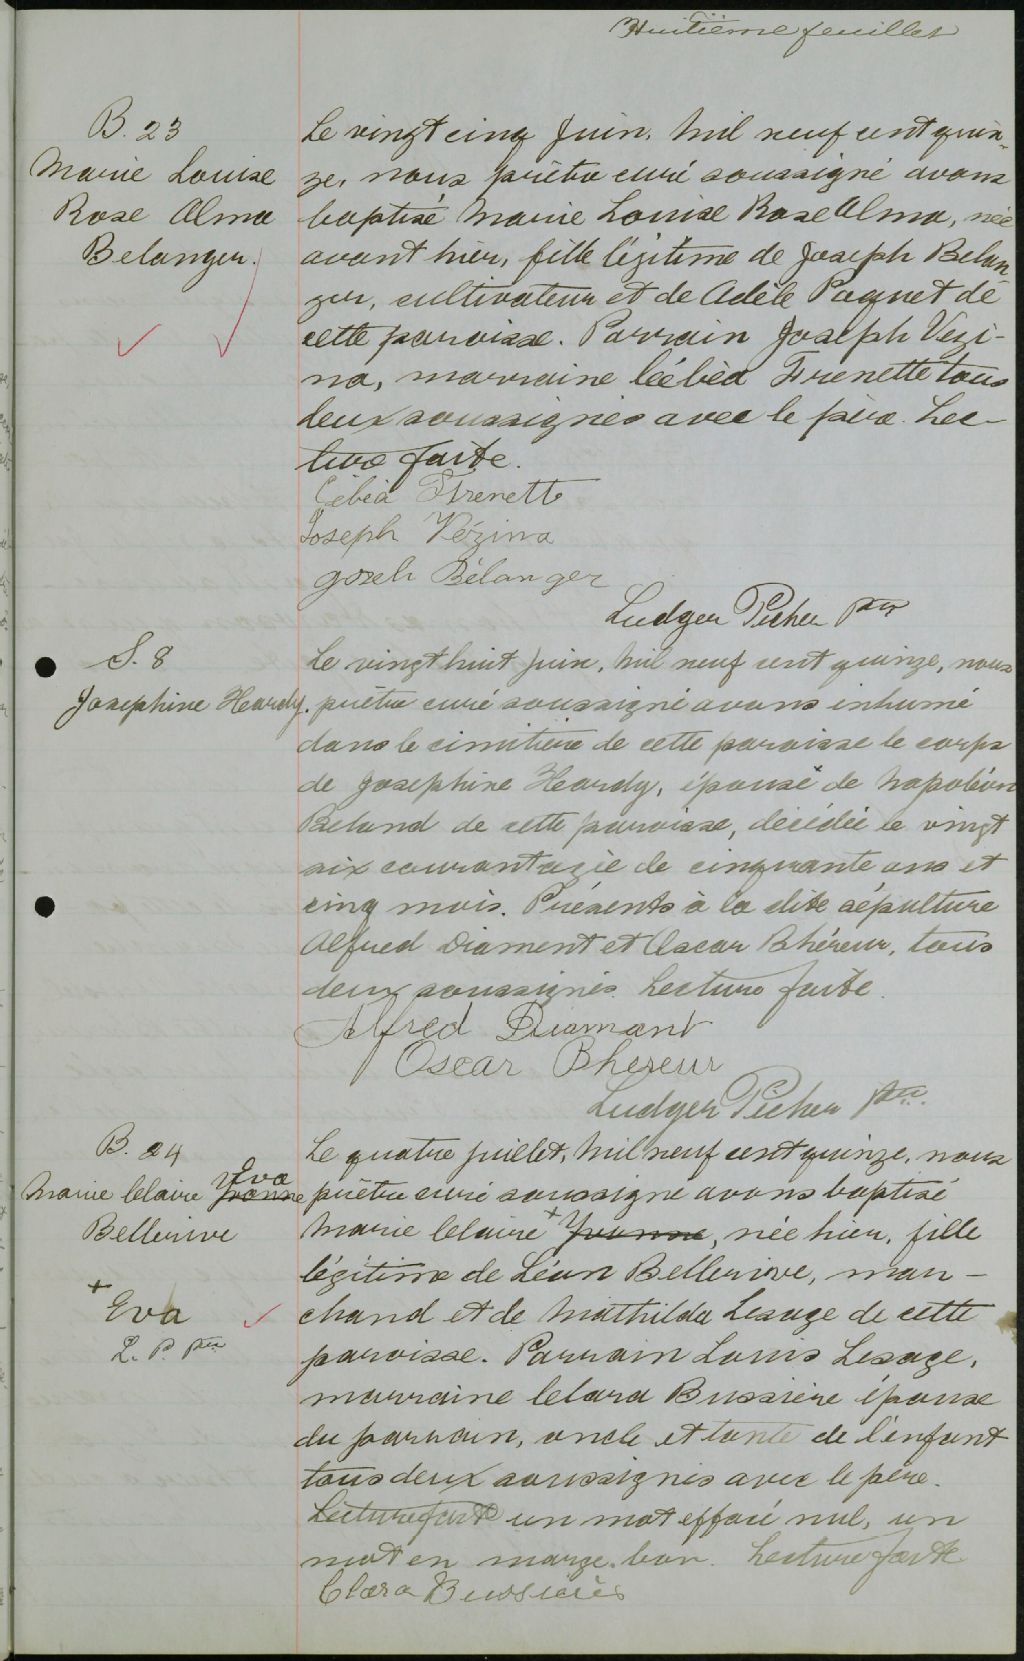 Huitième feuillet
B. 23
Marie Louise
Rose Alma
Belanger.
Le vingt cinq Juin, Mil neuf cent quin-
ze, nous prêtre curé soussigné avons
baptisé Marie Louise Rose Alma, née
avant hier, fille légitime de Joseph Belan
ger, cultivateur et de Adèle Paquet de
cette paroisse. Parrain Joseph Vezi-
na, marraine Célèda Frenette tous
deux soussignés avec le père. Lec-
ture faite.
Célia Frenette
Joseph Vézina
Joseh Bélanger
Ludger Picher ptre
S. 8
Josephine Heardy.
Le vingt huit Juin, Mil neuf cent quinze, nous
prêtre curé soussigné avons inhumé
dans le cimitière de cette paroisse le corps
de Josephine Heardy, épouse de Napoléon
Beland de cette paroisse, décédée le vingt
six courant agée de cinquante ans et
cinq mois. Présents à la dite sépulture
Alfred Diament et Oscar Bhéreur, tous
deux soussignés. Lecture faite.
Alfred Diamant
Oscar Bhereur
Ludger Picher ptre.
B. 24
Eva
Marie Claire Yvonne
Bellerive
+
Eva
L. P. ptre
Le quatre juillet, Mil neuf cent quinze, nous
prêtre curé soussigné avons baptisé
Marie Claire + Yvonne, née hier, fille
légitime de Léon Bellerive, mar-
chand et de Mathilda Lesage de cette
paroisse. Parrain Louis Lesage,
marraine Clara Bussière épouse
du parrain, oncle et tante de l'enfant
tous deux soussignés avec le père.
Lecture faite un mot effacé nul, un
mot en marge bon. Lecture faite
Clara Bussières